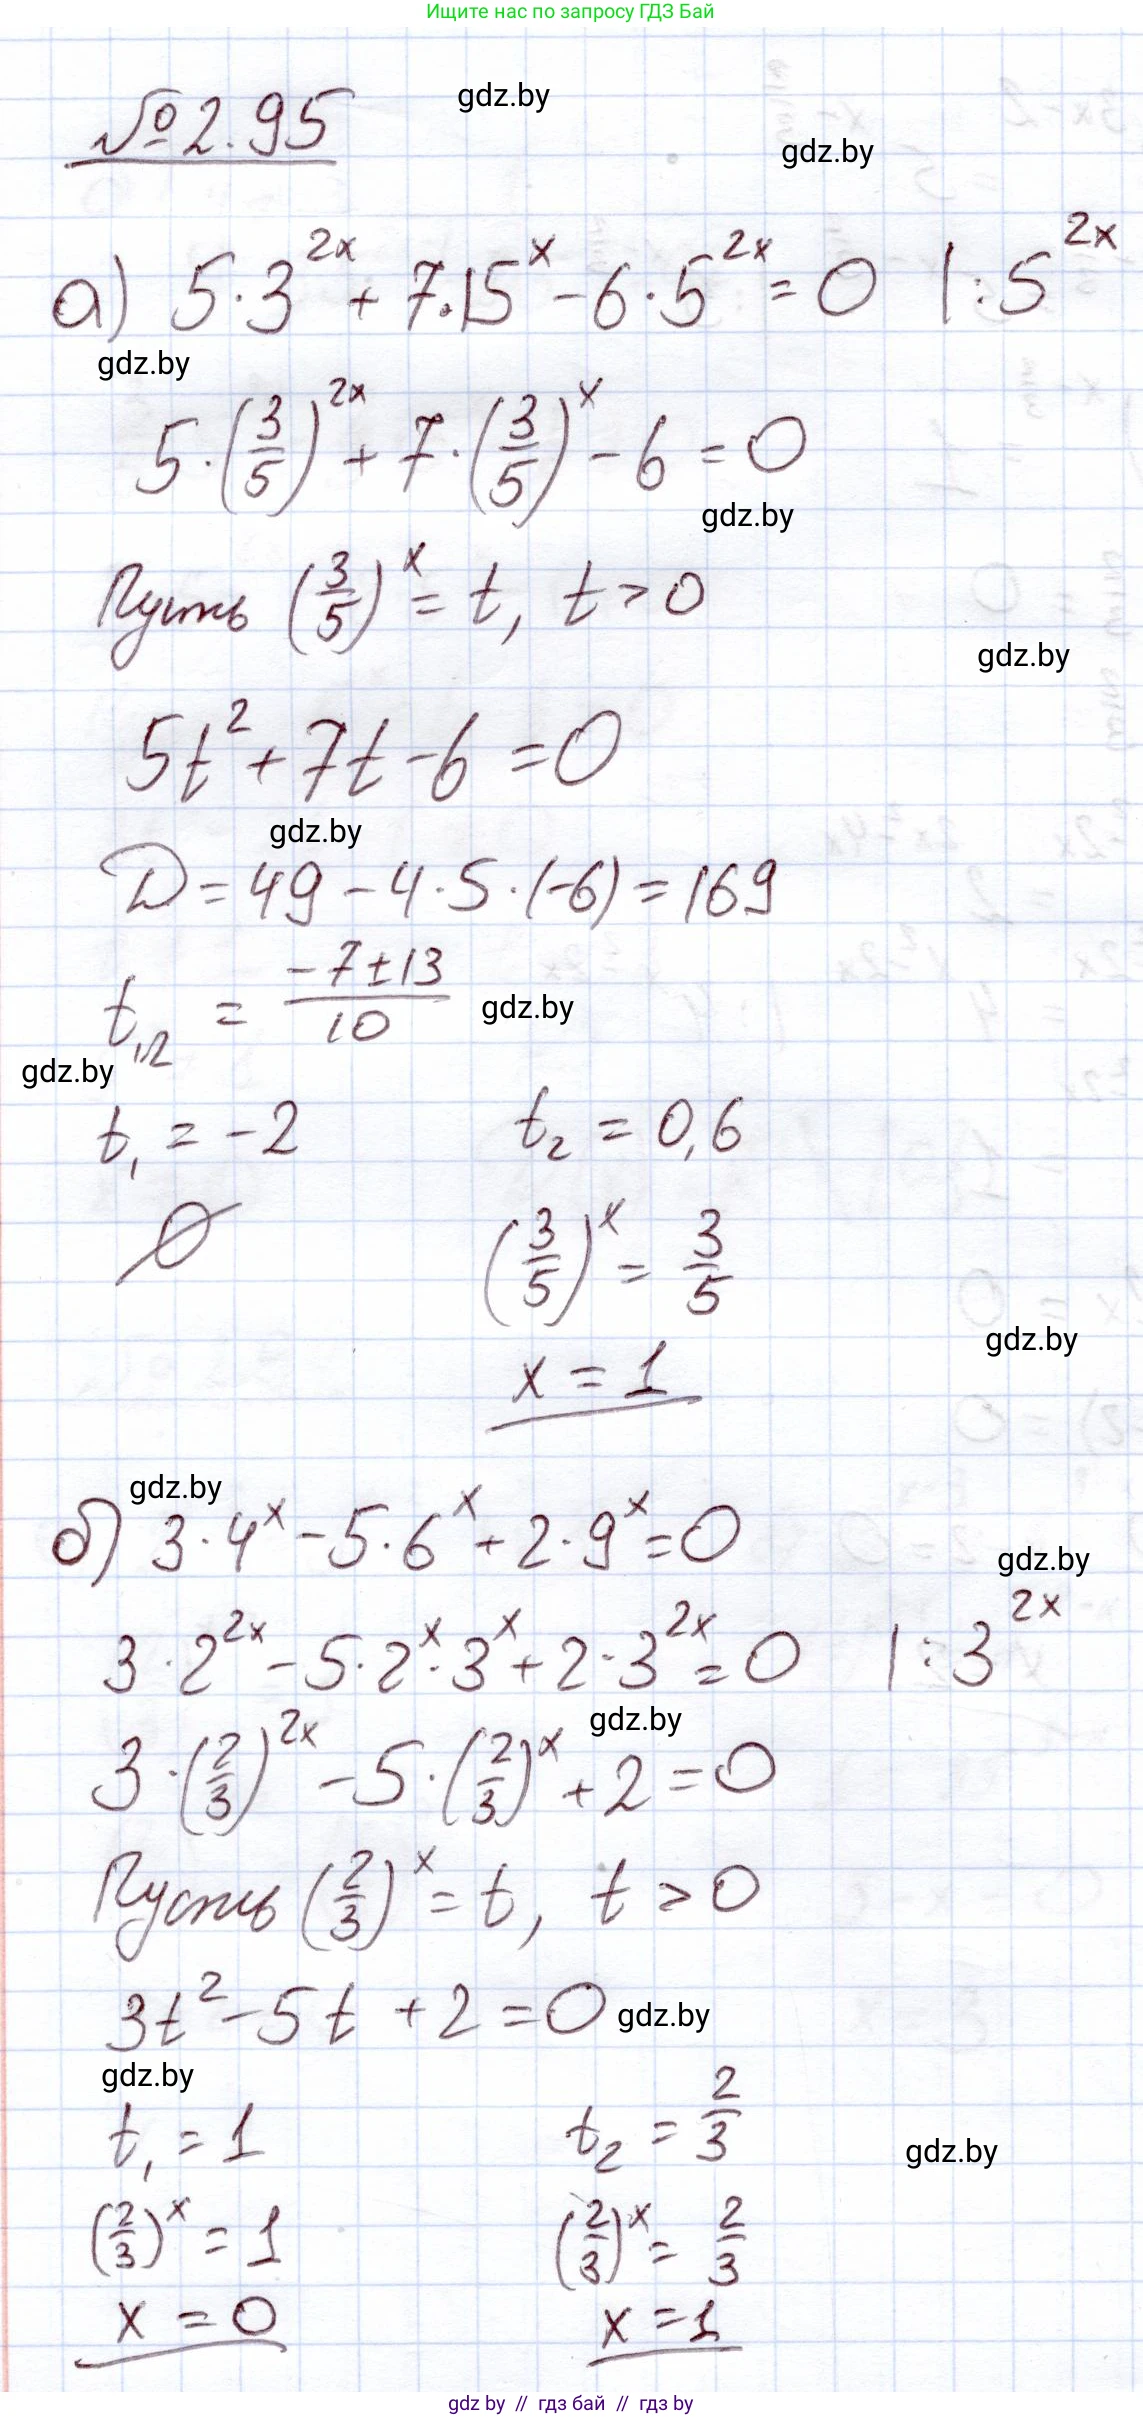 Ищите нас по запросу ГДЗ Бай
gdz.by
№2.95
gdz.by
а) 5·3^{2x} + 7·15^x - 6·5^{2x} = 0 |:5^{2x}
gdz.by
5·(3/5)^{2x} + 7·(3/5)^x - 6 = 0
gdz.by
Пусть (3/5)^x = t, t > 0
gdz.by
5t² + 7t - 6 = 0
gdz.by
D = 49 - 4·5·(-6) = 169
t_{1,2} = (-7±13)/10
gdz.by
gdz.by
t₁ = -2 t₂ = 0,6
∅ (3/5)^x = 3/5
gdz.by
x = 1
gdz.by
б) 3·4^x - 5·6^x + 2·9^x = 0
gdz.by
3·2^{2x} - 5·2^x·3^x + 2·3^{2x} = 0 |:3^{2x}
gdz.by
3·(2/3)^{2x} - 5·(2/3)^x + 2 = 0
Пусть (2/3)^x = t, t > 0
3t² - 5t + 2 = 0
gdz.by
gdz.by
t₁ = 1 t₂ = 2/3
gdz.by
(2/3)^x = 1 (2/3)^x = 2/3
x = 0 x = 1
gdz by // гдз бай // гдз by